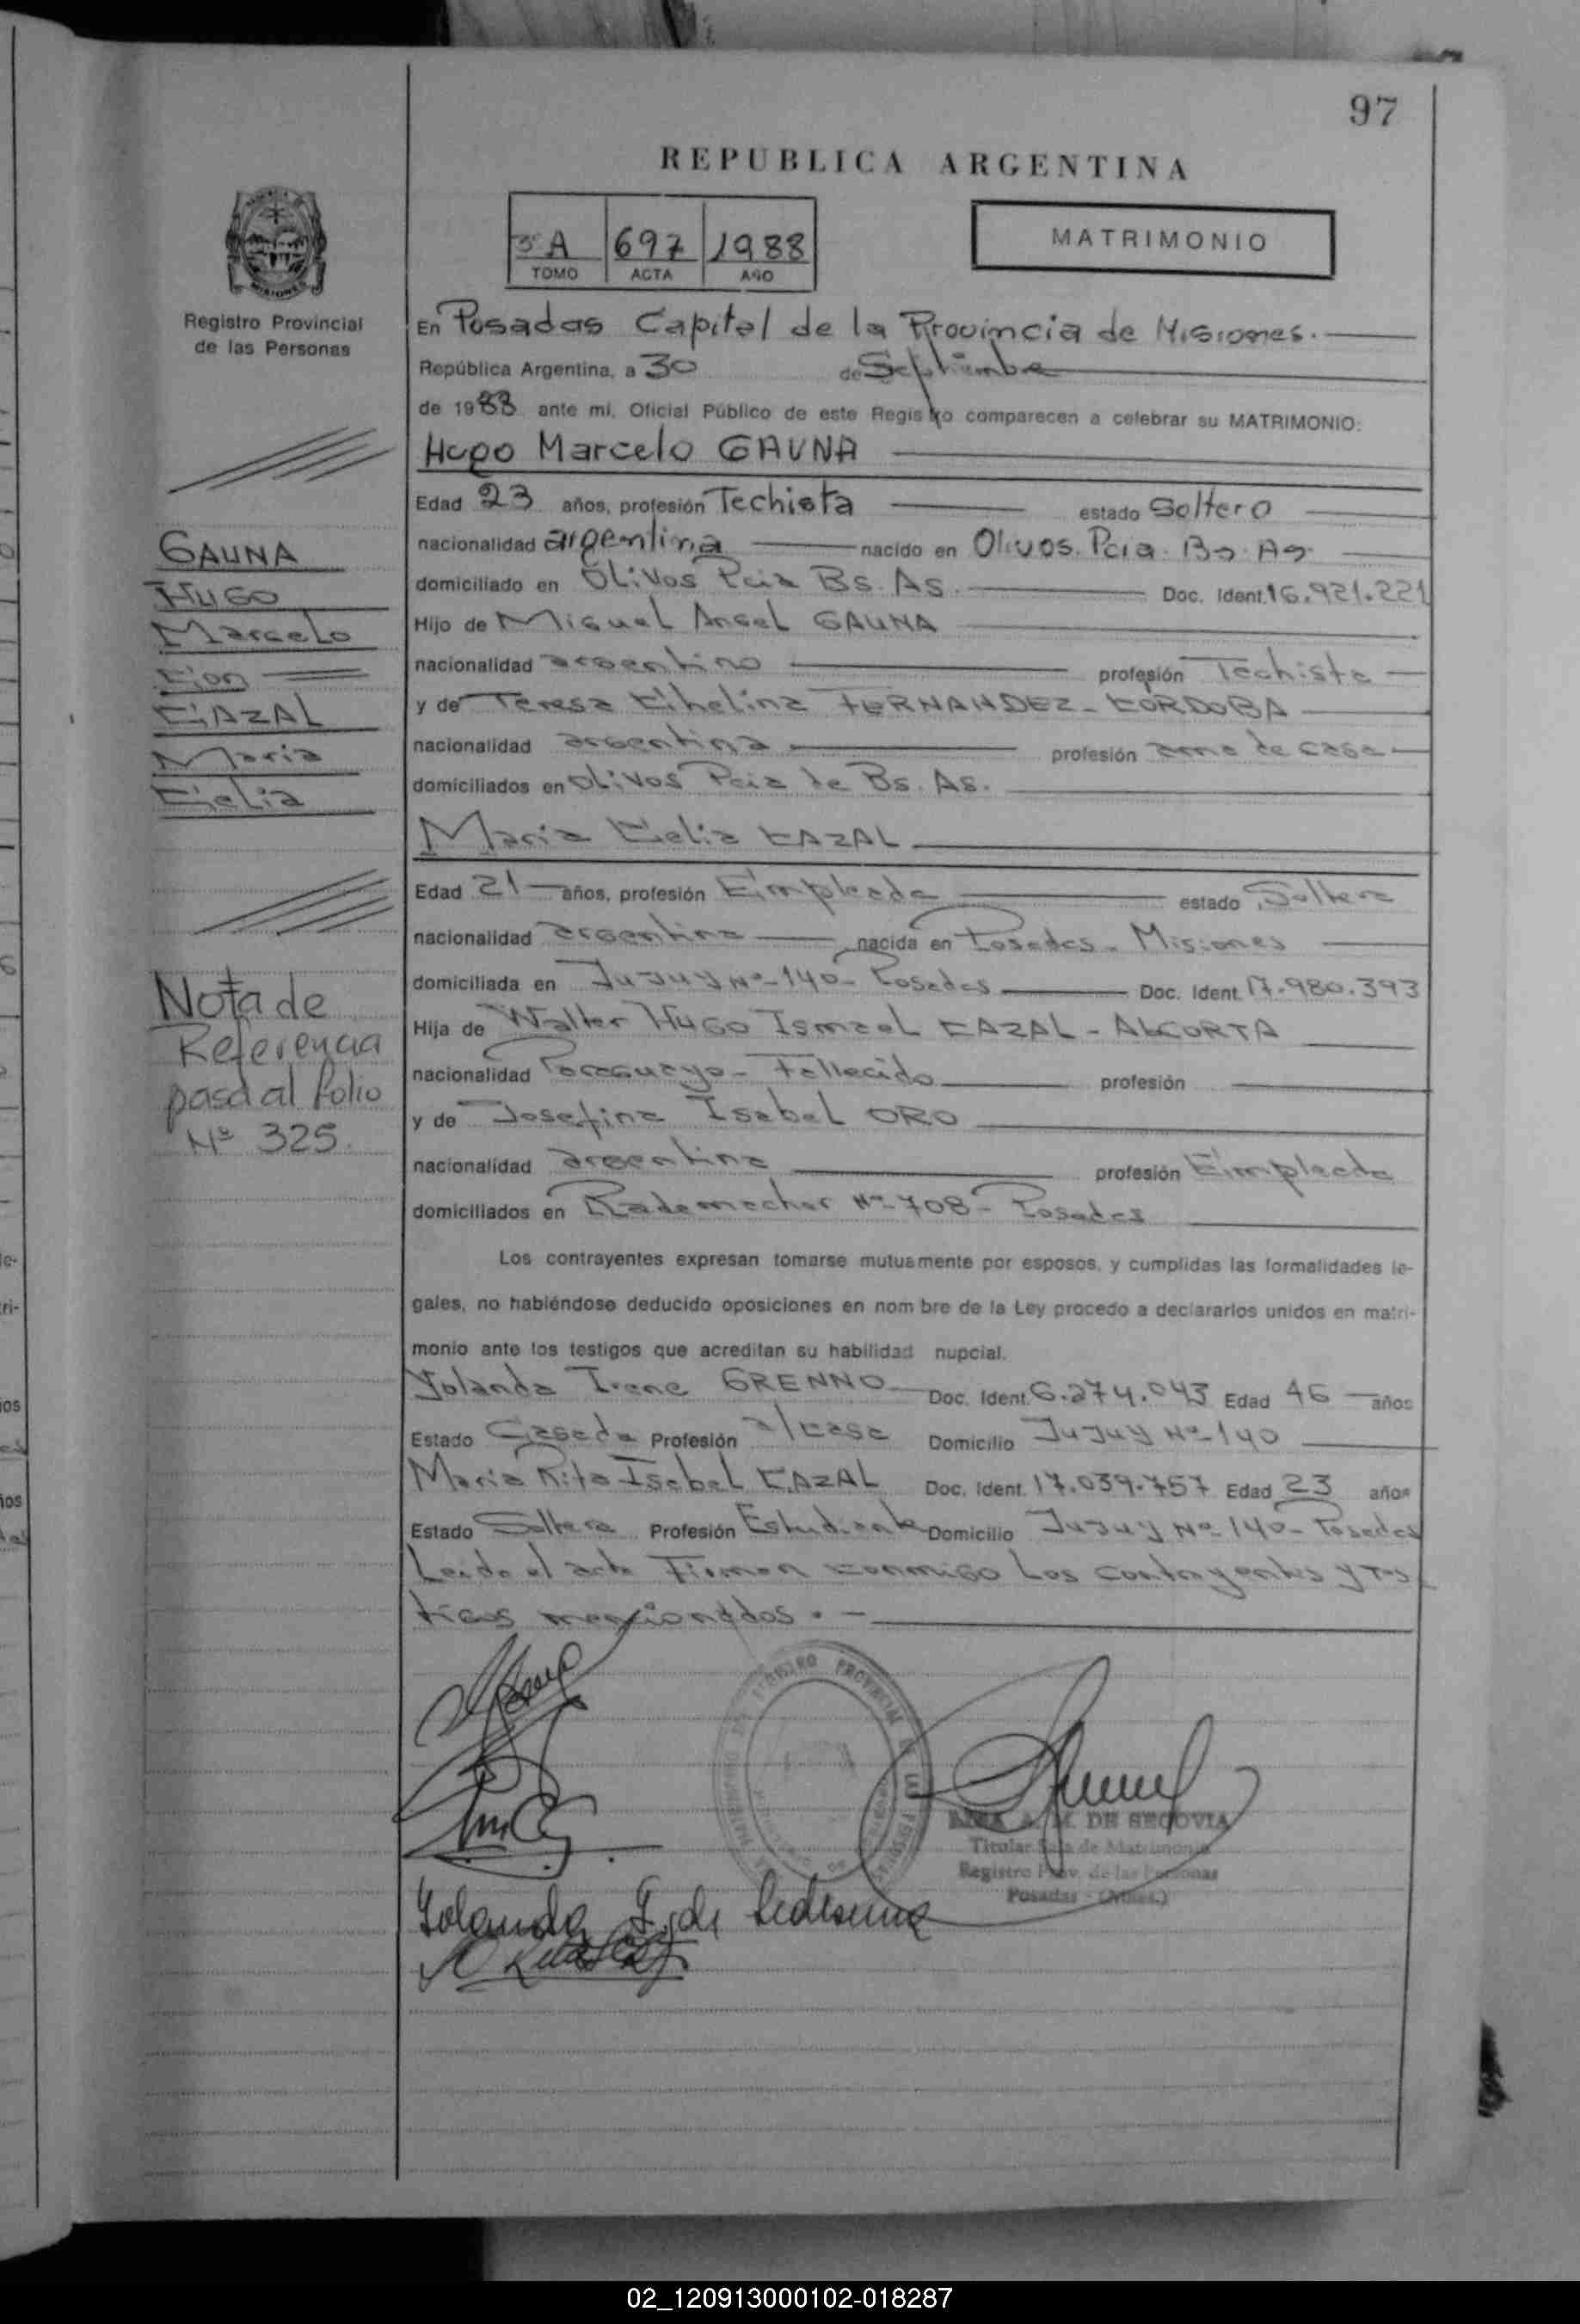 97
REPUBLICA ARGENTINA
3º A 697 1988
TOMO ACTA AÑO
MATRIMONIO
MISIONES
Registro Provincial
de las Personas
En Posadas Capital de la Provincia de Misiones.
República Argentina, a 30 de Septiembre
de 1988 ante mi, Oficial Público de este Registro comparecen a celebrar su MATRIMONIO:
Hugo Marcelo GAUNA
Edad 23 años, profesión Techista estado Soltero
nacionalidad argentina nacido en Olivos. Pcia. Bs. As.
domiciliado en Olivos Pcia Bs. As. Doc. Ident. 16.921.221
Hijo de Miguel Angel GAUNA
nacionalidad argentino profesión Techista
y de Teresa FERNANDEZ - CORDOBA
nacionalidad argentina profesión ama de casa
domiciliados en Olivos Pcia de Bs. As.
Maria Celia CAZAL
Edad 21 años, profesión Empleada estado Soltera
nacionalidad argentina nacida en Posadas - Misiones
domiciliada en Jujuy Nº 140 - Posadas Doc. Ident. 17.980.393
Hija de Walter Hugo Ismael CAZAL - ALCORTA
nacionalidad Paraguayo - Fallecido profesión
y de Josefina Isabel ORO
nacionalidad argentina profesión Empleada
domiciliados en Rademacher Nº 708 - Posadas
Los contrayentes expresan tomarse mutuamente por esposos, y cumplidas las formalidades le-
gales, no habiéndose deducido oposiciones en nom bre de la Ley procedo a declararlos unidos en matri-
monio ante los testigos que acreditan su habilidad nupcial.
Yolanda Irene GRENNO Doc. Ident. 6.274.043 Edad 46 años
Estado Casada Profesión a/casa Domicilio Jujuy Nº 140
Maria Rita Isabel CAZAL Doc. Ident. 17.039.757 Edad 23 años
Estado Soltera Profesión Estudiante Domicilio Jujuy Nº 140 - Posadas
Leida el acta Firman conmigo Los contrayentes y tes
tigos mencionados. -
GAUNA
HUGO
Marcelo
Con
CAZAL
Maria
Celia
Nota de
Referencia
pasa al folio
Nº 325.
REGISTRO PROVINCIAL
Yolanda G. de Ledesma
A. M. DE SEGOVIA
Titular Sala de Matrimonio
Registro Prov. de las Personas
Posadas - (Mnes.)
02_120913000102-018287